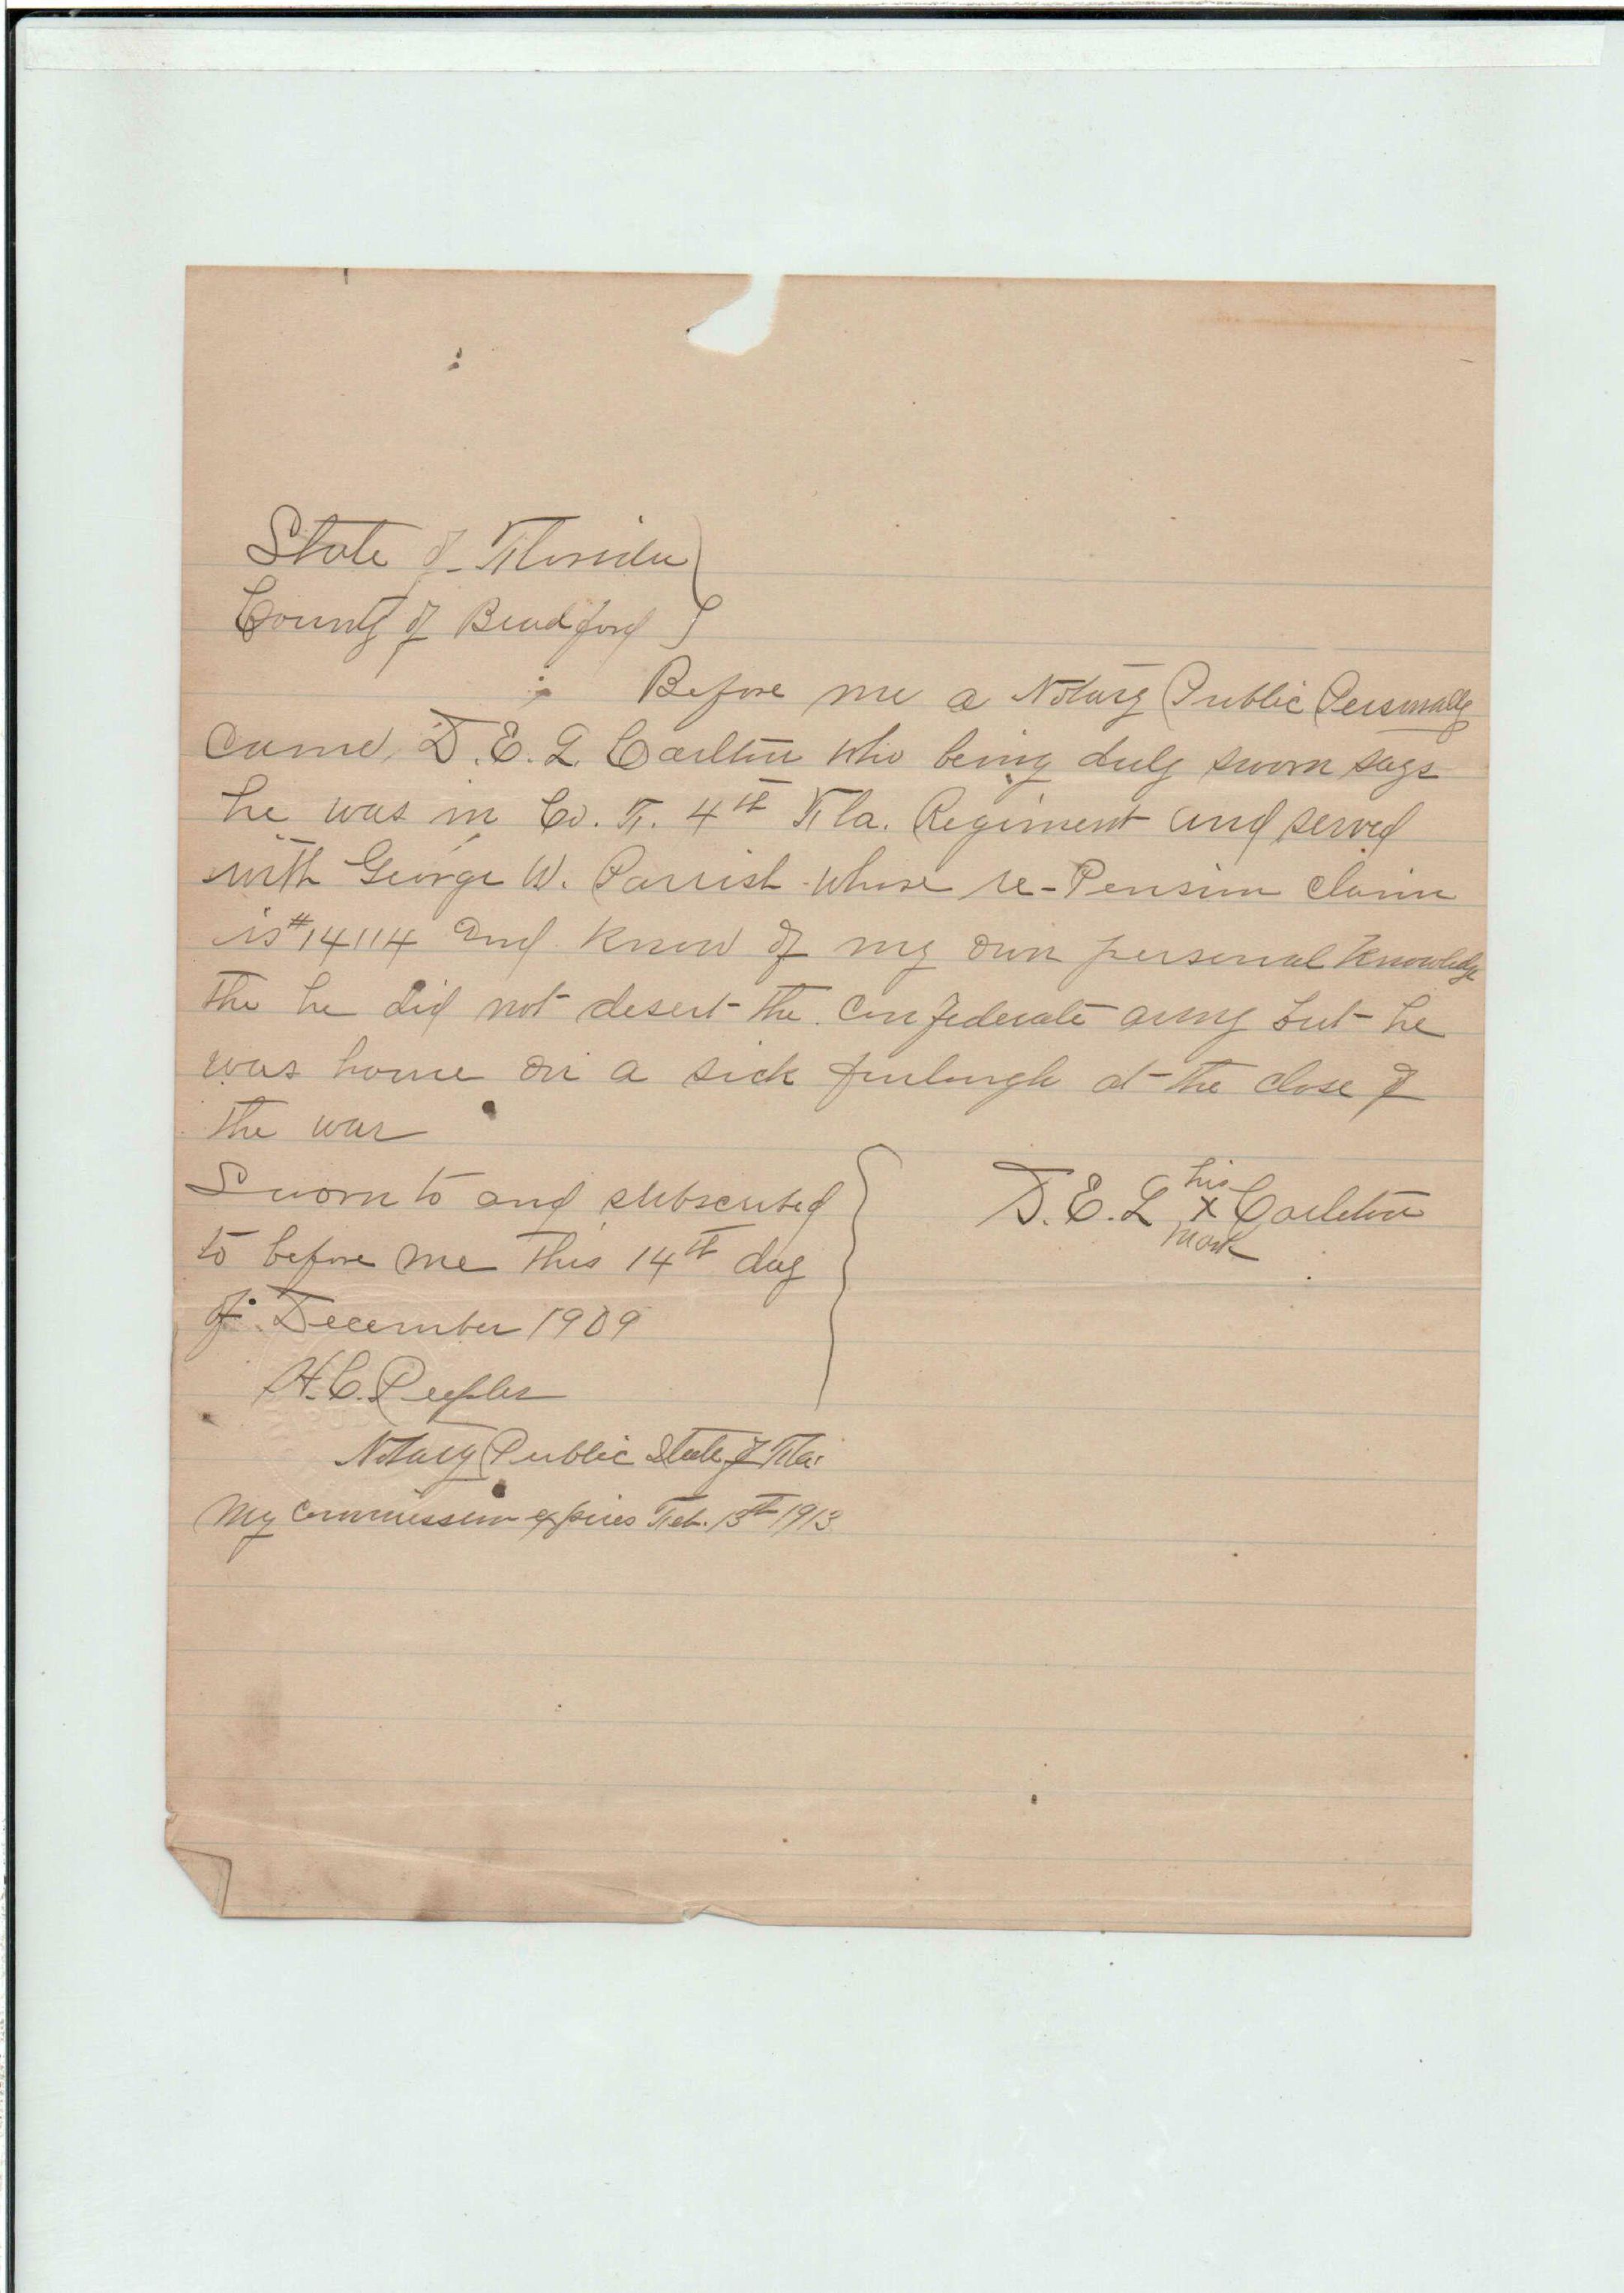 State of Florida
County of Bradford
Before me a Notary Public Personally
came, D. E. L. Carlton who being duly sworn says
he was in Co. F. 4th Fla. Regiment and served
with George W. Parrish whose re-Pension claim
is #14114 and know of my own personal knowledge
the he did not desert the Confederate army but he
was home on a sick furlough at the close of
the war
Sworn to and subscribed
to before me this 14th day
of December 1909
D. E. L. his x mark Carleton
H. C. Peeples
Notary Public State of Fla.
My commission expires Feb. 13th 1913